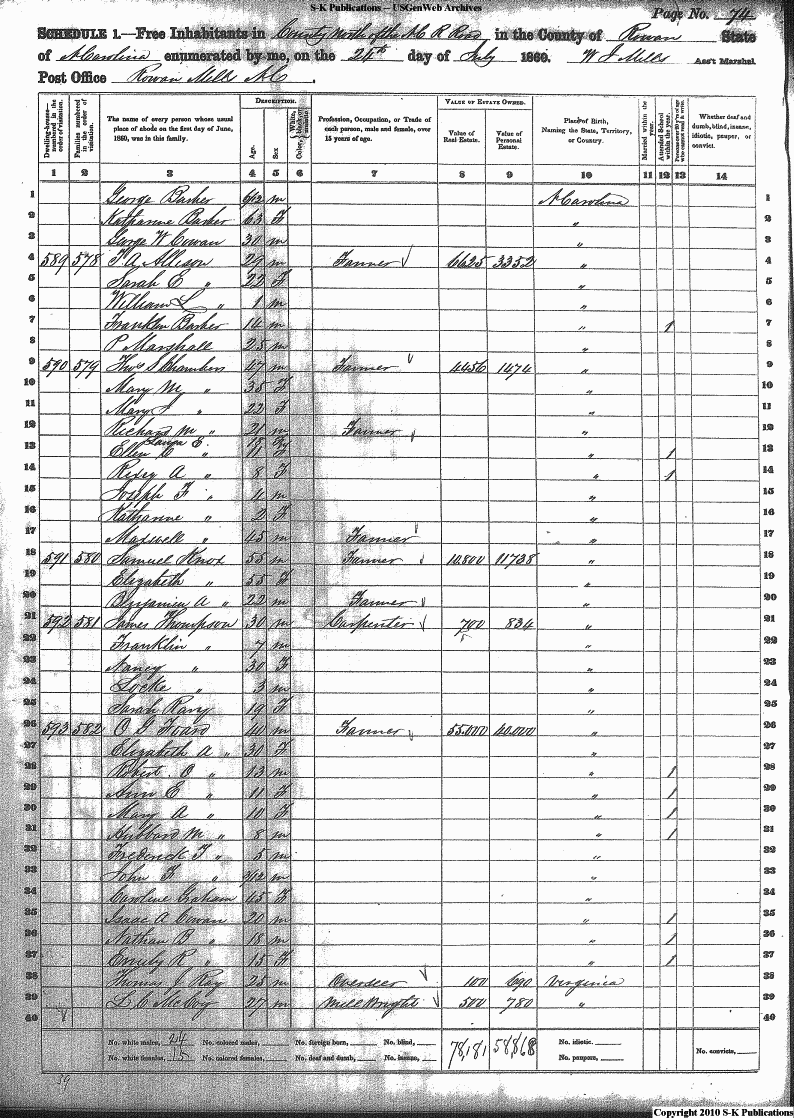 S-K Publications – USGenWeb Archives
Page No. 74
SCHEDULE 1.—Free Inhabitants in County North of the N C R Road in the County of Rowan State
of N Carolina enumerated by me, on the 24th day of July 1860. W J Mills Ass't Marshal.
Post Office Rowan Mills N C.
Dwelling-houses—numbered in the order of visitation. Families numbered in the order of visitation. The name of every person whose usual place of abode on the first day of June, 1860, was in this family. DESCRIPTION. Age. Sex. Color, White, black, or mulatto Profession, Occupation, or Trade of each person, male and female, over 15 years of age. VALUE OF ESTATE OWNED. Value of Real Estate. Value of Personal Estate. Place of Birth, Naming the State, Territory, or Country. Married within the year. Attended School within the year. Persons over 20 y'rs of age who cannot read & write. Whether deaf and dumb, blind, insane, idiotic, pauper, or convict.
1 2 3 4 5 6 7 8 9 10 11 12 13 14
1 George Barker m N Carolina 1
2 Katharine Barker 63 F " 2
3 George W Cowan 30 m " 3
4 589 578 T A Allison 29 m Farmer 6625 3352 " 4
5 Sarah E " 22 F " 5
6 William L " 1 m " 6
7 Franklin Barker 14 m " 1 7
8 P Marshall 25 m " 8
9 590 579 Thos S Chambers 47 m Farmer 4456 1474 " 9
10 Mary M " 35 F " 10
11 Mary J " 22 F " 11
12 Richard M " 21 m Farmer " 12
Laura E. 18 F
13 Ellen C " 11 F " 1 13
14 A " 8 F " 1 14
15 Joseph F " 4 m " 15
16 Katharine " 2 F " 16
17 Maxwell " 45 m Farmer " 17
18 591 580 Samuel Knox 55 m Farmer 10.800 11738 " 18
19 Elizabeth " 55 F " 19
20 Benjamin A " 22 m Farmer " 20
21 592 581 James Thompson 30 m Carpenter 700 834 " 21
22 Franklin " 7 m " 22
23 Nancy " 30 F " 23
24 Locke " 3 m " 24
25 Sarah Rary 19 F " 25
26 593 582 O G Foard 40 m Farmer 55.000 40.000 " 26
27 Elizabeth A " 30 F " 27
28 Robert O " 13 m " 1 28
29 Ann E " 11 F " 1 29
30 Mary A " 10 F " 1 30
31 Hubbard M " 8 m " 1 31
32 Frederick F " 5 m " 32
33 John F " 3/12 m " 33
34 Caroline Graham 45 F " 34
35 Isaac A Cowan 20 m " 1 35
36 Nathan B " 18 m " 1 36
37 Emily R " 15 F " 1 37
38 Thomas J Ray 25 m Overseer 100 690 Virginia 38
39 L C McCoy 27 m Mill Wright 500 780 " 39
40 40
No. white males, 24 No. colored males, No. foreign born, No. blind, 78,181 58,868 No. idiotic,
No. white females, 15 No. colored females, No. deaf and dumb, No. insane, No. paupers, No. convicts,
39
Copyright 2010 S-K Publications